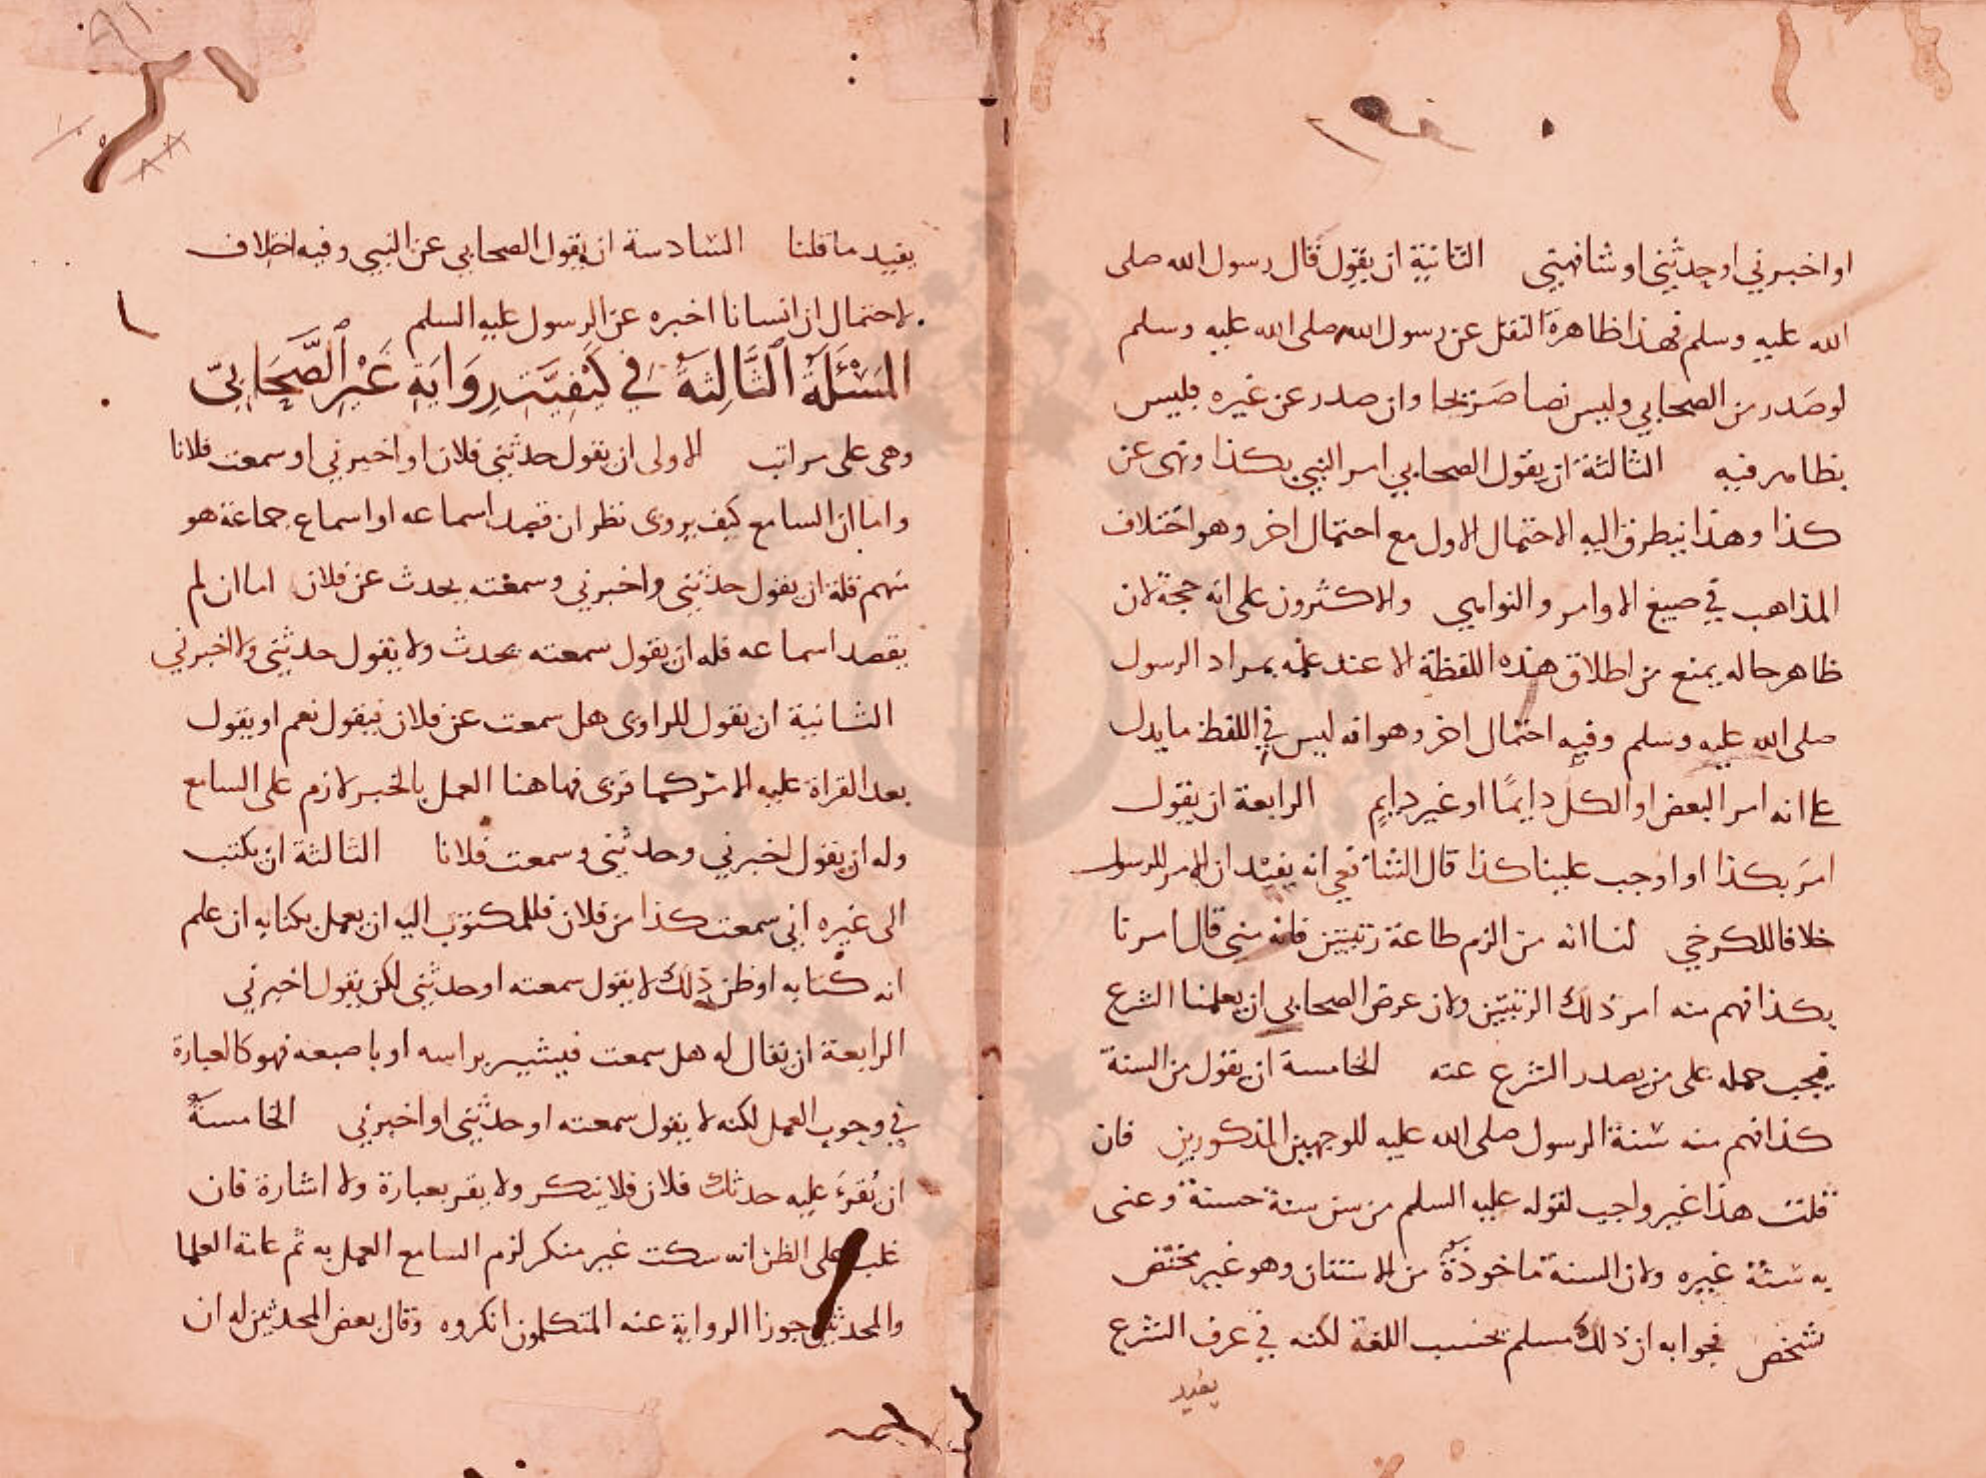 او اخبرني او حدثني او شافهني الثانية ان يقول قال رسول الله صلى
الله عليه وسلم فهذا ظاهره النقل عن رسول الله صلى الله عليه وسلم
لو صدر من الصحابي وليس نصا صريحا وان صدر عن غيره فليس
بظاهر فيه الثالثة ان يقول الصحابي امر النبي بكذا ونهى عن
كذا وهذا يتطرق اليه الاحتمال الاول مع احتمال اخر وهو اختلاف
المذاهب في صيغ الاوامر والنواهي والاكثرون على انه حجة لان
ظاهر حاله يمنع من اطلاق هذه اللفظة الا عند علمه بمراد الرسول
صلى الله عليه وسلم وفيه احتمال اخر وهو انه ليس في اللفظ ما يدل
على انه امر البعض او الكل دايمًا او غير دايمٍ الرابعة ان يقول
امر بكذا او اوجب علينا كذا قال الشافعي انه يفيد ان الامر للرسول
خلافا للكرخي لنا انه من الزم طاعة رئيس فانه متى قال امرنا
بكذا فهم منه امر ذلك الرئيس ولان غرض الصحابي ان يعلمنا الشرع
فيجب حمله على من يصدر الشرع عنه الخامسة ان يقول من السنة
كذا فهم منه سنة الرسول صلى الله عليه للوجهين المذكورين فان
قلت هذا غير واجب لقوله عليه السلم من سن سنة حسنة وعنى
به سنة غيره ولان السنة ماخوذة من الاستنان وهو غير مختص
شخص فجوابه ان ذلك مسلم بحسب اللغة لكنه في عرف الشرع
يفيد
يفيد ما قلنا السادسة ان يقول الصحابي عن النبي وفيه اختلاف
لاحتمال ان انسانا اخبره عن الرسول عليه السلم
المَسْئَلَةُ الثَّالِثَةُ في كَيْفِيَّتِ رِوَايَةِ غَيْرِ الصَّحَابِيّ
وهي على مراتب الاولى ان يقول حدثني فلان او اخبرني او سمعت فلانا
واما ان السامع كيف يروى نظر ان قصد اسماعه او اسماع جماعة هو
منهم فله ان يقول حدثني واخبرني وسمعته يحدث عن فلان اما ان لم
يقصد اسماعه فله ان يقول سمعته يحدث ولا يقول حدثني ولا اخبرني
الثانية ان يقول للراوى هل سمعت عن فلان فيقول نعم او يقول
بعد القراة عليه الامر كما قرى فهاهنا العمل بالخبر لازم على السامع
وله ان يقول اخبرني وحدثني وسمعت فلانا الثالثة ان يكتب
الى غيره اني سمعت كذا من فلان فللمكتوب اليه ان يعمل بكتابه ان علم
انه كتابه او ظن ذلك لا يقول سمعته او حدثني لكن يقول اخبرني
الرابعة ان يقال له هل سمعت فيشير براسه او باصبعه فهو كالعبارة
في وجوب العمل لكنه لا يقول سمعته او حدثني او اخبرني الخامسة
ان يُقرَءَ عليه حدثك فلان فلا ينكر ولا يقر بعبارة ولا اشارة فان
غلب على الظن انه سكت غير منكر لزم السامع العمل به ثم عامة العلما
والمحدثين جوزا الرواية عنه المتكلمون انكروه وقال بعض المحدثين له ان